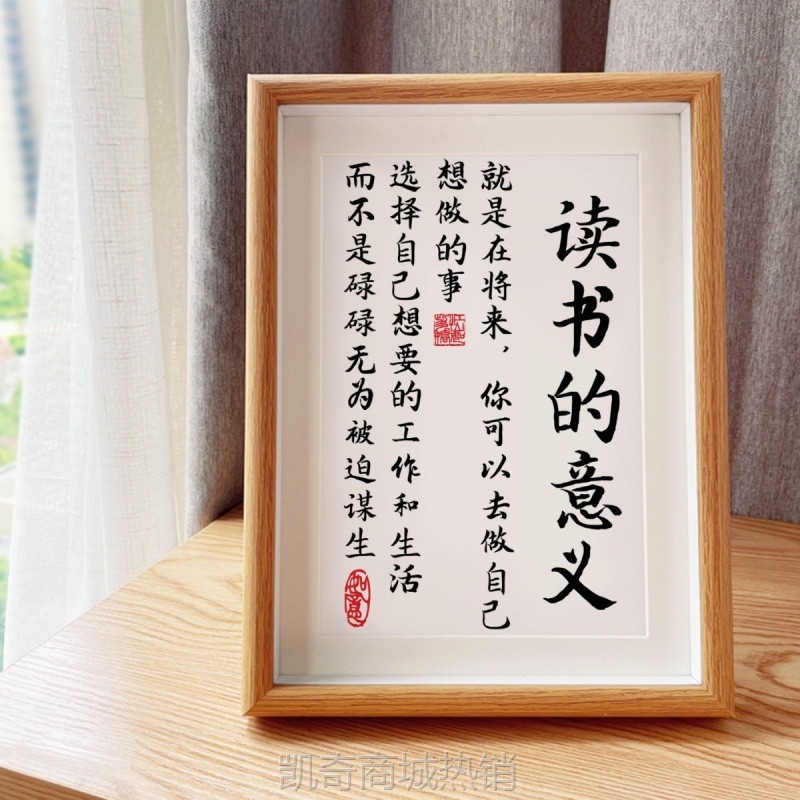 读书的意义
就是在将来，你可以去做自己
想做的事
选择自己想要的工作和生活
而不是碌碌无为被迫谋生
如意
凯奇商城热销